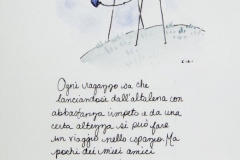 Ogni ragazzo sa che
lanciandosi dall'altalena con
abbastanza impeto e da una
certa altezza si può fare
un viaggio nello spazio. Ma
pochi dei miei amici